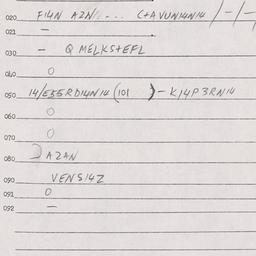 020 F14N AZN/... C+AVUN14N14 /-/-
021 -
030 - Q MELKS+EFL
040 O
050 14/E5ERD14N14 (101 )-K14P3RN14
060 O
070 O
080 AZAN
090 VENS14Z
091 O
092 -